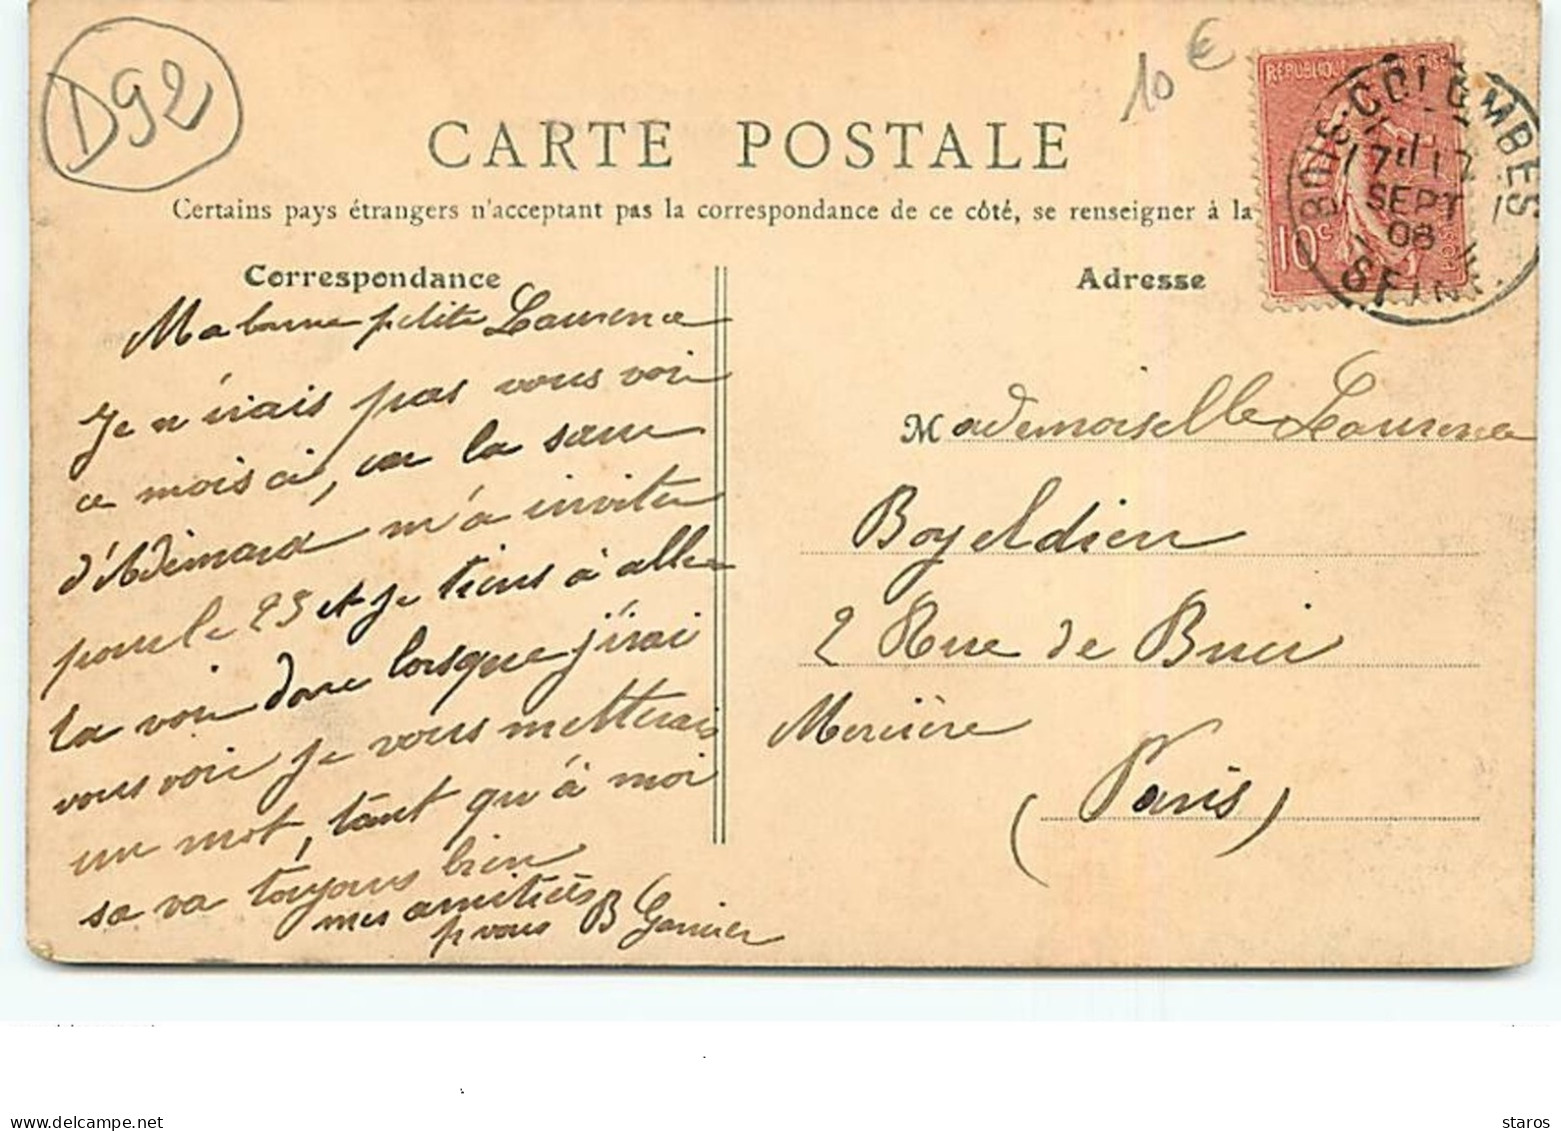 D92
10 €
RÉPUBLIQUE FRANÇAISE
10c
BOIS-COLOMBES
17
SEPT
08
SEINE
CARTE POSTALE
Certains pays étrangers n'acceptent pas la correspondance de ce côté, se renseigner à la
Correspondance
Ma bonne petite Laurence
Je n'irais pas vous voir
ce mois ci, car la sœur
d'Adémard m'a inviter
pour le 25 et je tiens à aller
la voir donc lorsque j'irai
vous voir je vous metterais
un mot, tant qu'à moi
sa va toujours bien
mes amitiés
p vous B Garnier
Adresse
Mademoiselle Laurence
Boyeldieu
2 Rue de Buci
Mercière
(Paris)
www.delcampe.net
staros